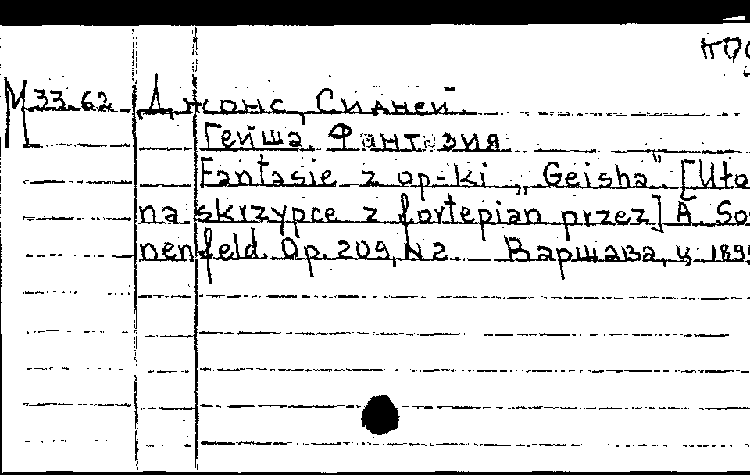 М 33-62 Джонс, Сидней.
Гейша. Фантазия
Fantasie z op-ki „Geisha". [Uło
na skrzypce z fortepian przez] A. Son
nenfeld. Op. 209, N 2. Варшава, ц. 1899